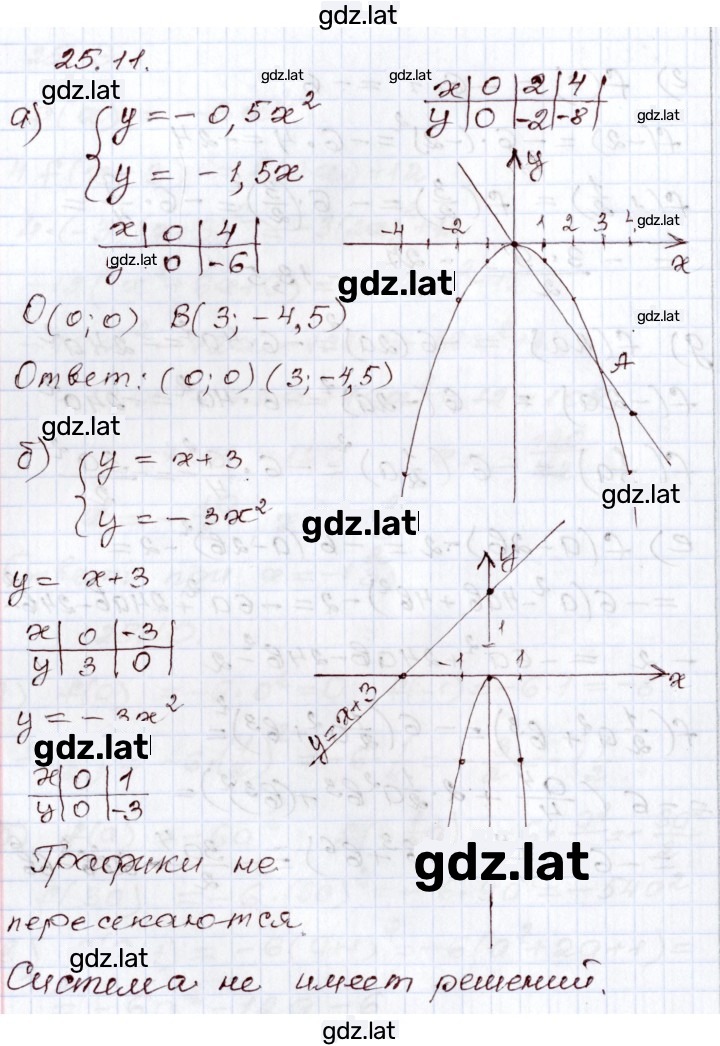 gdz.lat
25.11.
gdz.lat
gdz.lat
gdz.lat
x | 0 | 2 | 4
y | 0 | -2 | -8
gdz.lat
а) { y = - 0,5x²
y = - 1,5x
x | 0 | 4
y | 0 | -6
gdz.lat
y
-4 -2 1 2 3 4
x
gdz.lat
gdz.lat
gdz.lat
A
O(0;0) B(3; -4,5)
Ответ: (0;0) (3;-4,5)
gdz.lat
gdz.lat
б) { y = x+3
y = - 3x²
gdz.lat
y = x+3
x | 0 | -3
y | 3 | 0
y
1
-1 1
x
y=x+3
y = - 3x²
gdz.lat
x | 0 | 1
y | 0 | -3
gdz.lat
Графики не
пересекаются.
gdz.lat
Система не имеет решений.
gdz.lat